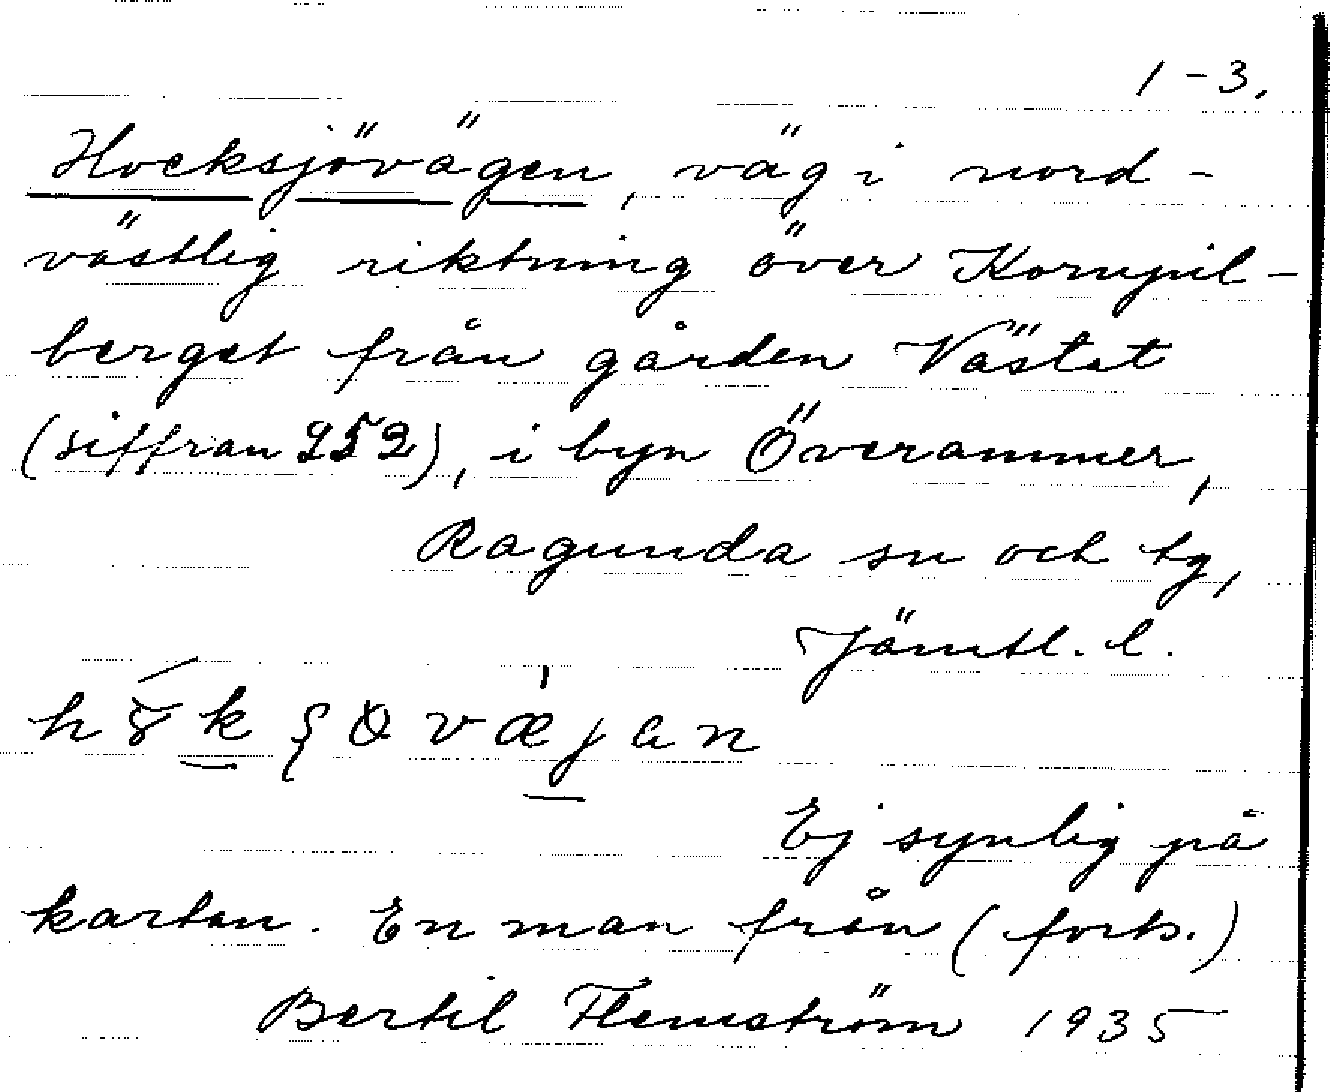 1-3.
Hocksjövägen, väg i nord-
västlig riktning över Kornpil-
berget från gården Västet
(siffran 252), i byn Överammer,
Ragunda sn och tg,
Jämtl. l.
Ej synlig på
kartan. En man från (forts.)
Bertil Flemström 1935